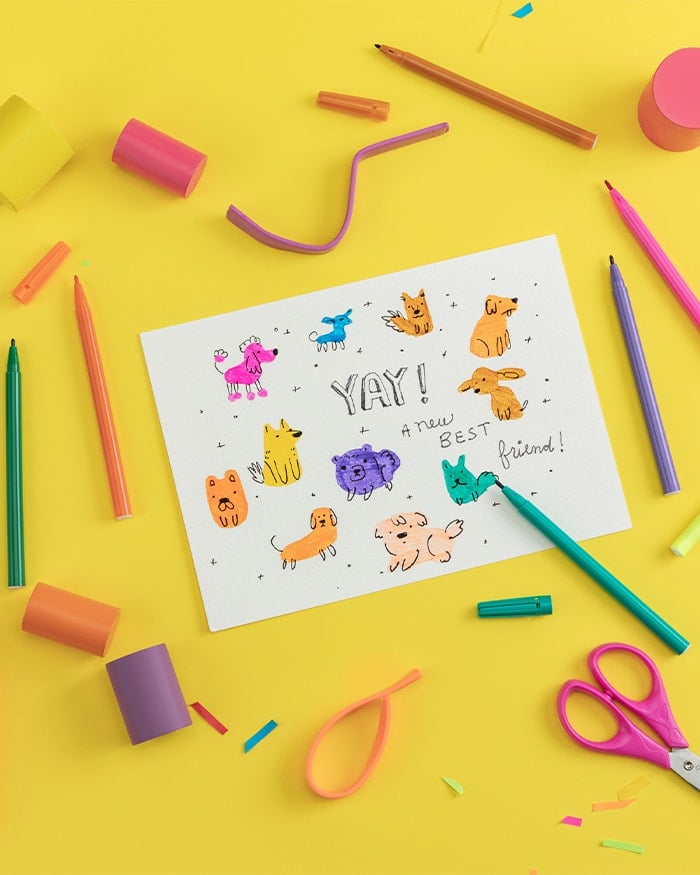 YAY!
A new
BEST
friend!